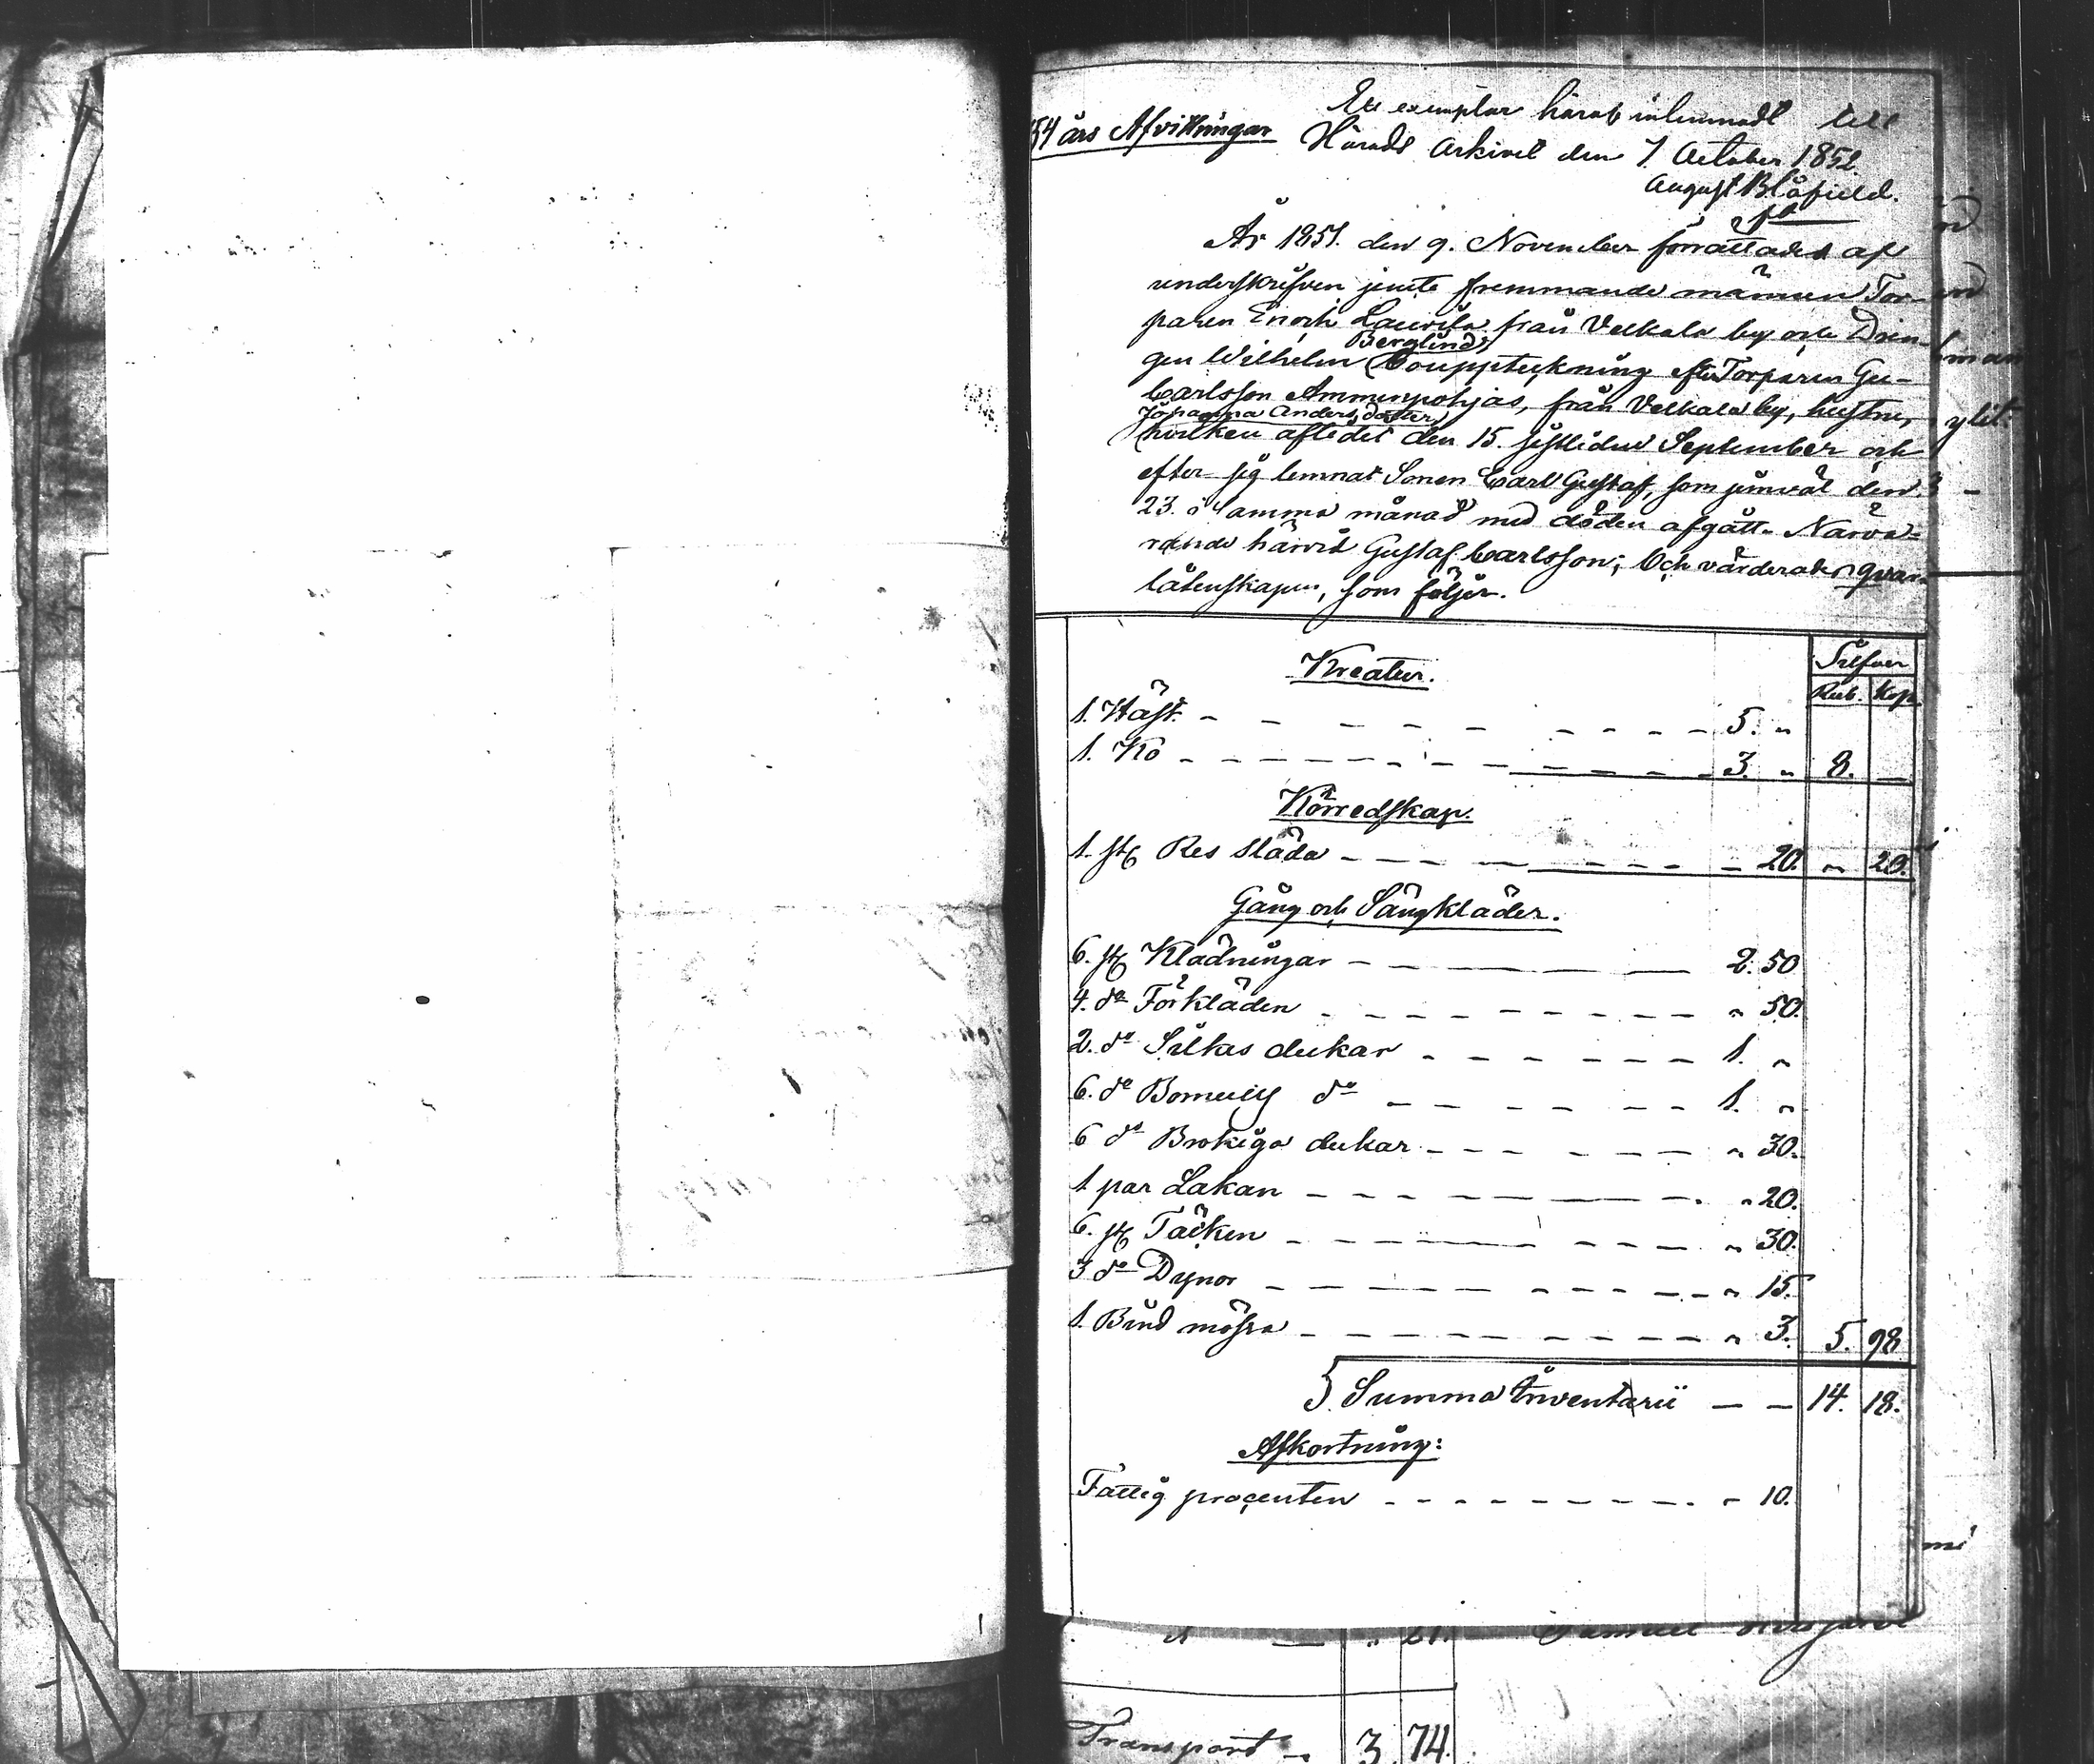 Ett exemplar häraf inlemnadt till
54 års Afvittningar Härads Arkivet den 7 October 1852.
August Blåfield.
År 1851. den 9. November förrättades af
underskrifven jemte fremmande männen Tor-
paren Enoch Laurila från Velkala by och Drän-
gen Wilhelm Berglind, Bouppteckning efter Torparen Gu-
Carlsson Ammenpohjas, från Velkala by, hustru,
Johanna Anders dotter,
hvilken aflidit den 15. sistlidne September och
efter sig lemnat Sonen Carl Gustaf, som jemväl den
23. i samma månad med döden afgått. Närva-
rande härvid Gustaf Carlsson; Och värderades qvar-
låtenskapen, som följer.
Silfver
Kreatur. Rub. Kop.
1. Häst - - - 5. "
1. Ko - - - 3. " 8. —
Körredskap.
1. st Res släda - - - 20. " 20.
Gång och Sängkläder.
6. st Klädningar - - - 2. 50
4. do Förkläden - - - " 50.
2. do Silkes dukar - - - 1. "
6. do Bomulls do - - - 1. "
6 do Brokiga dukar - - - " 30.
1 par Lakan - - - " 20.
6. st Täcken - - - " 30.
3 do Dynor - - - " 15.
1. Bind mössa - - - " 3. 5. 98
Summa Inventarii — — 14. 18.
Afkortning:
Fattig procenten - - - " 10.
" 21.
Transport 3 74.